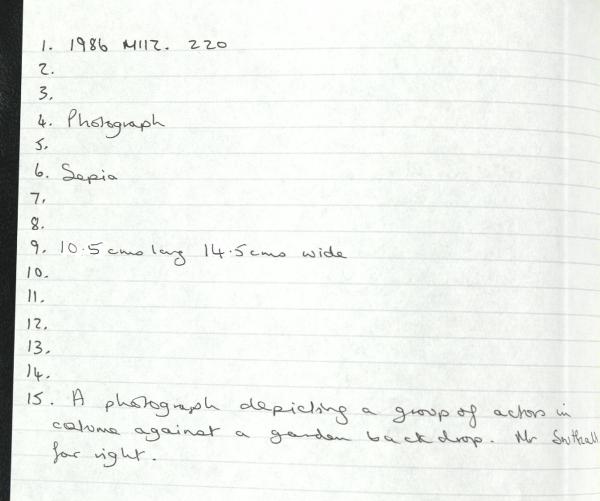 1. 1986 M112. 220
2.
3.
4. Photograph
5.
6. Sepia
7.
8.
9. 10.5 cms long 14.5 cms wide
10.
11.
12.
13.
14.
15. A photograph depicting a group of actors in
costume against a garden backdrop. Mr Southall
far right.